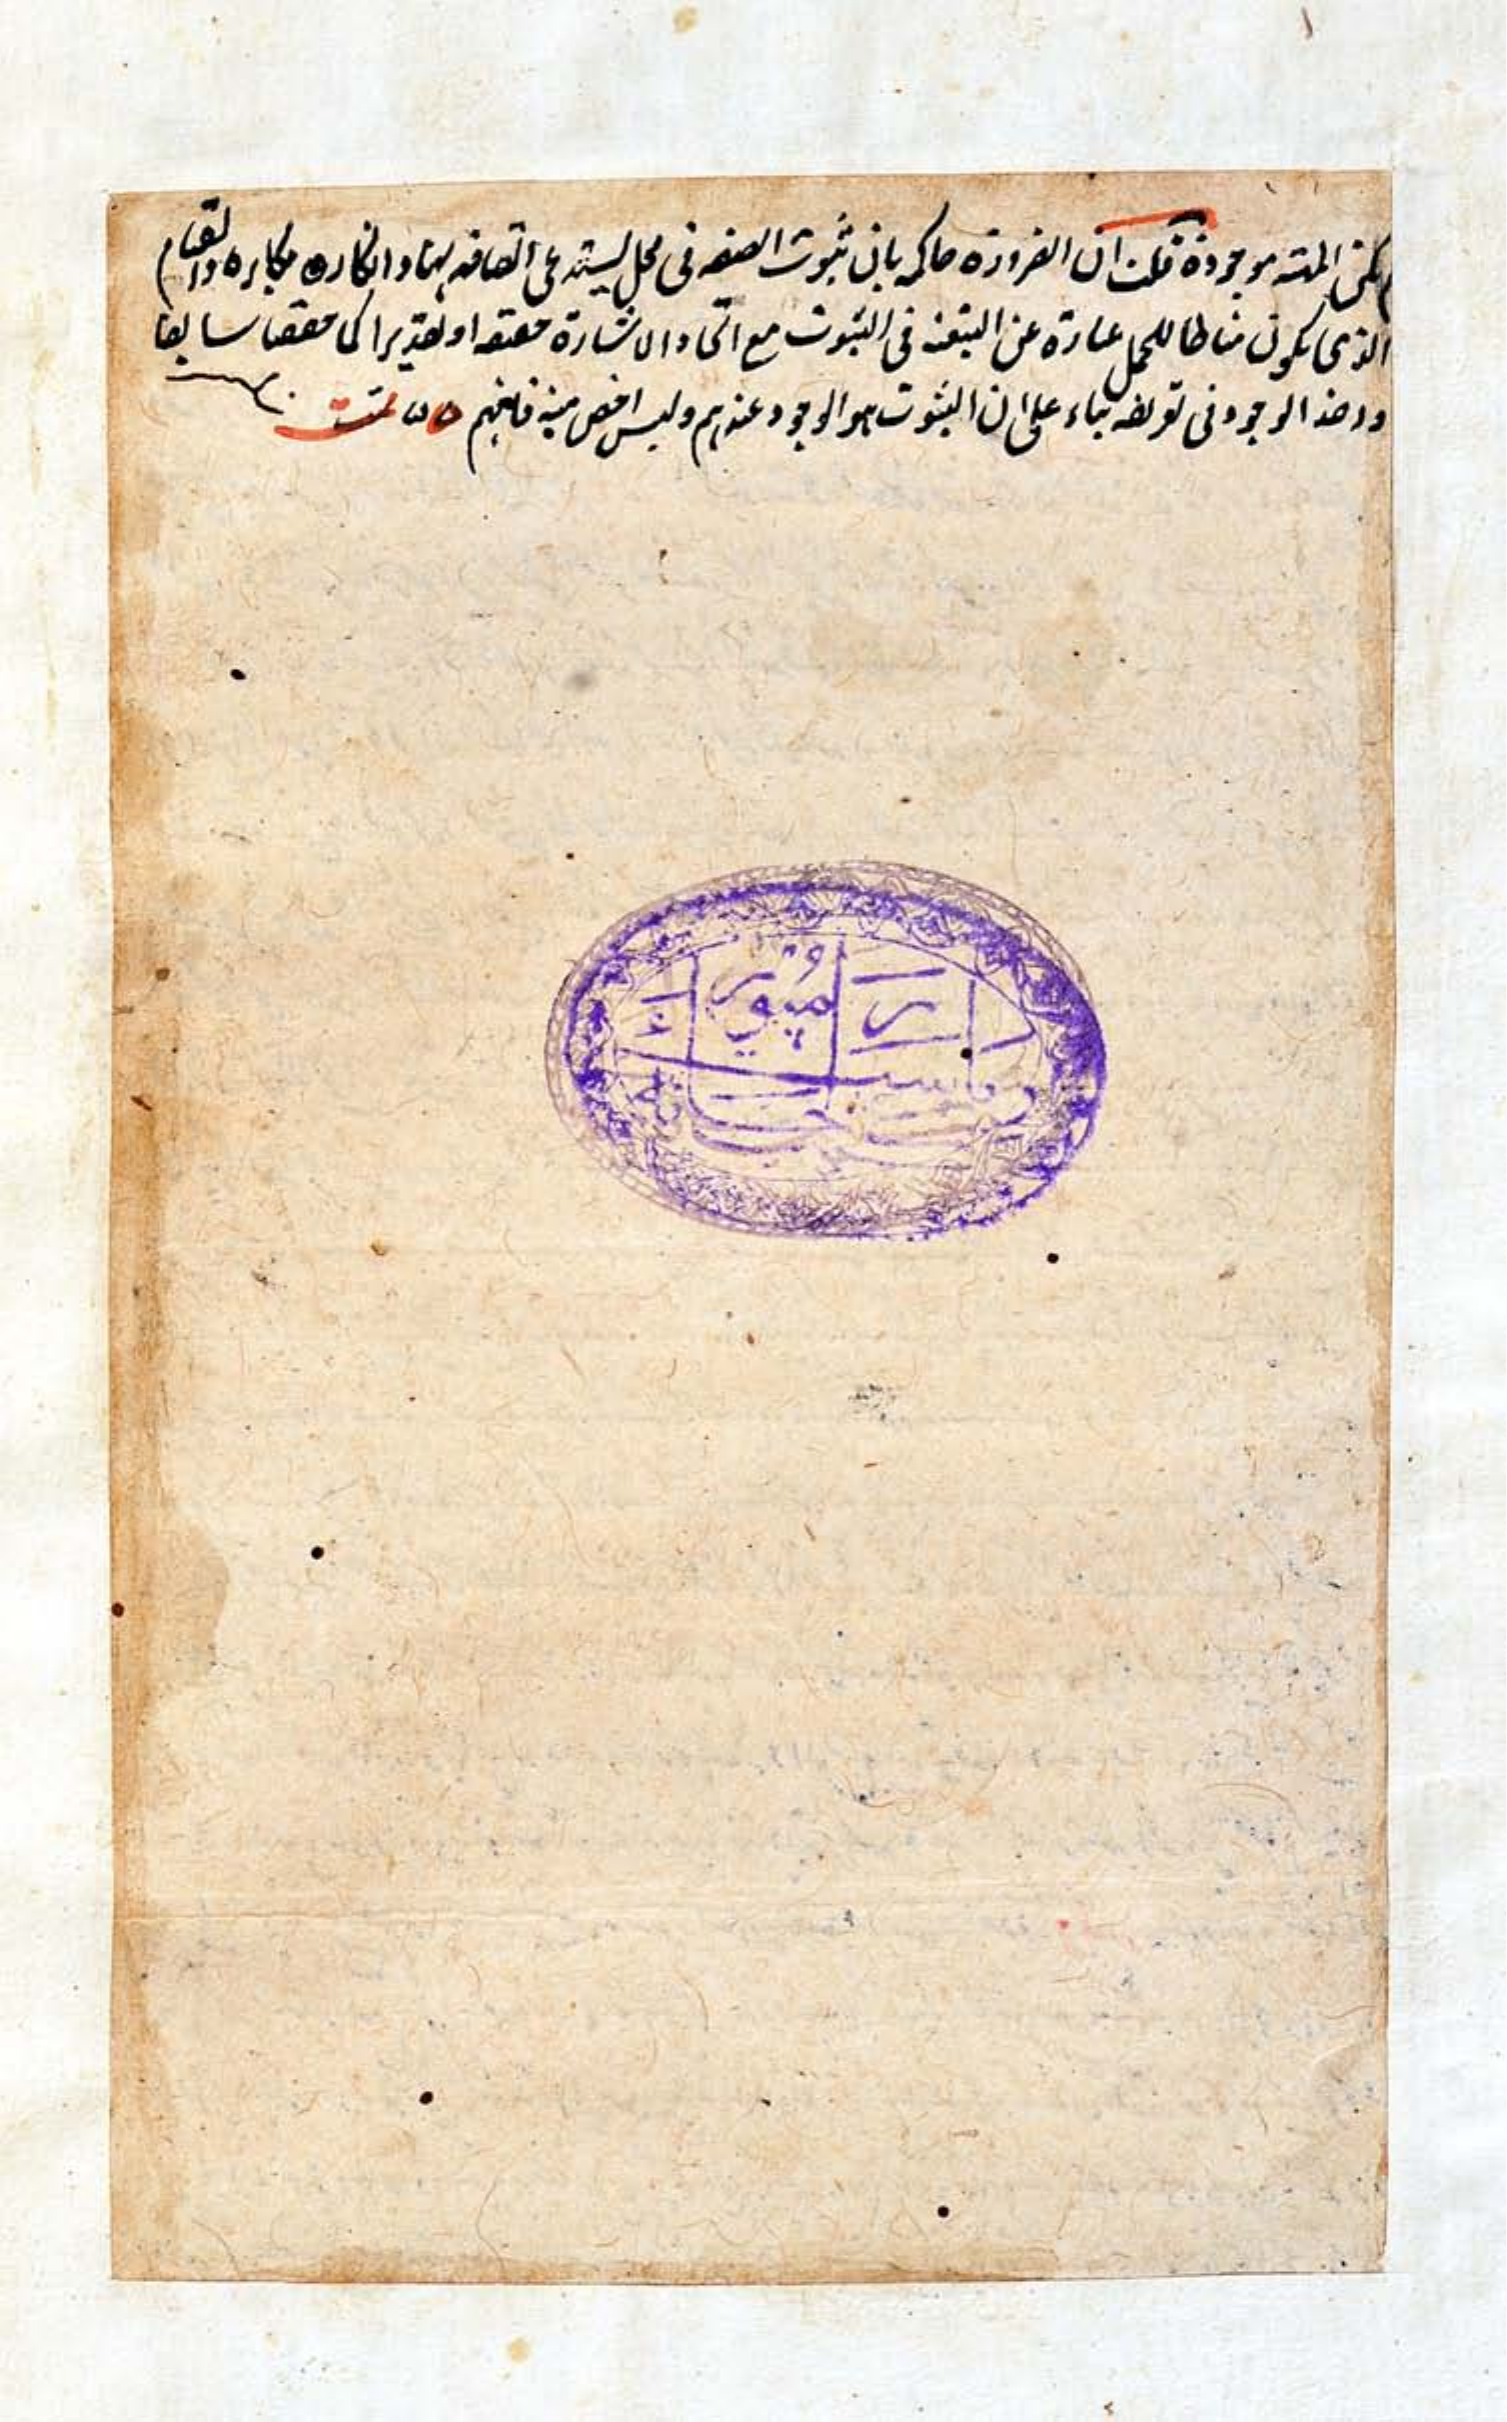 لم يكن الهيئة موجودة قلت ان الضرورة حاكمة بان ثبوت الصفة فى محل يستدعى اتصافه بها وانكاره مكابرة والقيام
الذى يكون مناطا للحمل عبارة عن التبعية فى الثبوت مع اتحاد الاشارة حقيقة او تقديرا كما حققنا سابقا
وخذ الوجود فى تعريفه بناء على ان الثبوت هو الوجود عندهم وليس اخص منه فافهم تمت
رامپور